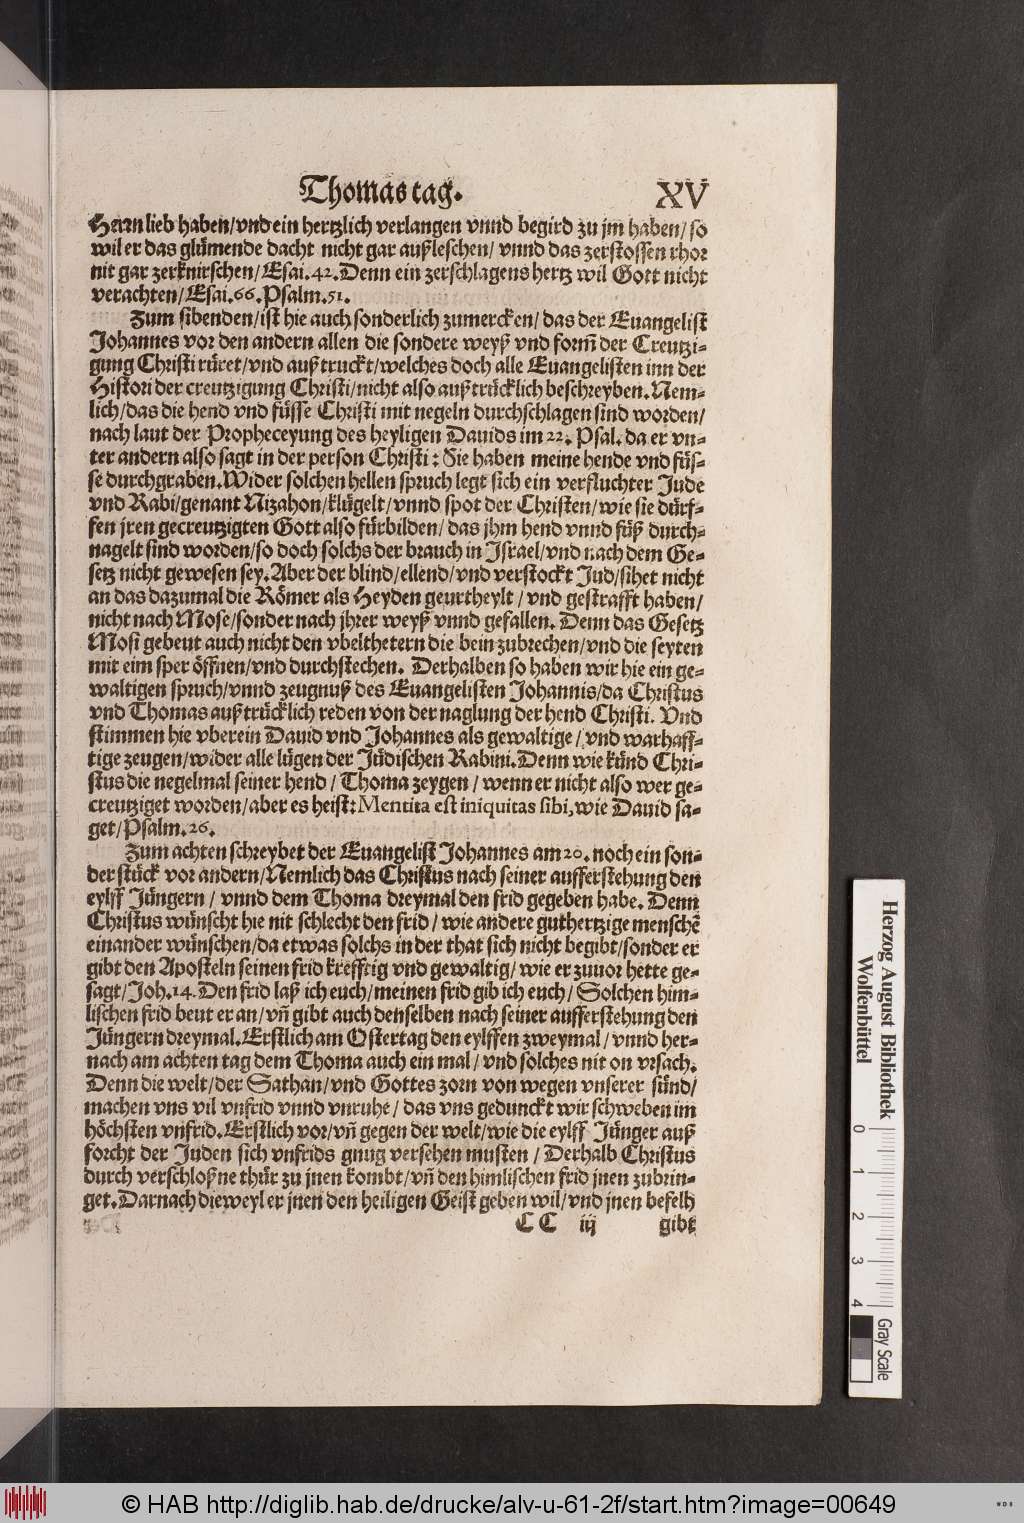 Thomas tag. XV
Herrn lieb haben/vnd ein hertzlich verlangen vnnd begird zu jm haben/so
wil er das glümende dacht nicht gar außleschen/ vnnd das zerstossen rhor
nit gar zerknirschen/Esai.42.Denn ein zerschlagens hertz wil Gott nicht
verachten/Esai.66.Psalm.51.
Zum sibenden/ist hie auch sonderlich zumercken/das der Euangelist
Johannes vor den andern allen die sondere weyß vnd form̃ der Creutzi-
gung Christi rüret/vnd außtruckt/welches doch alle Euangelisten inn der
Histori der creutzigung Christi/nicht also außtrücklich beschreyben.Nem-
lich/das die hend vnd füsse Christi mit negeln durchschlagen sind worden/
nach laut der Propheceyung des heyligen Dauids im 22. Psal. da er vn-
ter andern also sagt in der person Christi: Sie haben meine hende vnd füs-
se durchgraben.Wider solchen hellen spruch legt sich ein verfluchter Jude
vnd Rabi/genant Nizahon/klügelt/vnnd spot der Christen/wie sie dürf-
fen jren gecreutzigten Gott also fürbilden/das jhm hend vnnd füß durch-
nagelt sind worden/so doch solchs der brauch in Israel/vnd nach dem Ge-
setz nicht gewesen sey.Aber der blind/ellend/vnd verstockt Jud/sihet nicht
an das dazumal die Römer als Heyden geurtheylt/vnd gestrafft haben/
nicht nach Mose/sonder nach jhrer weyß vnnd gefallen. Denn das Gesetz
Mosi gebeut auch nicht den vbelthetern die bein zubrechen/vnd die seyten
mit eim sper öffnen/vnd durchstechen. Derhalben so haben wir hie ein ge-
waltigen spruch/vnnd zeugnuß des Euangelisten Johannis/da Christus
vnd Thomas außtrücklich reden von der naglung der hend Christi. Vnd
stimmen hie vberein Dauid vnd Johannes als gewaltige/vnd warhaff-
tige zeugen/wider alle lügen der Jüdischen Rabini.Denn wie künd Chri-
stus die negelmal seiner hend/Thoma zeygen/wenn er nicht also wer ge-
creutziget worden/aber es heist: Mentita est iniquitas sibi, wie Dauid sa-
get/Psalm.26.
Zum achten schreybet der Euangelist Johannes am 20. noch ein son-
der stück vor andern/Nemlich das Christus nach seiner aufferstehung den
eylff Jüngern/vnnd dem Thoma dreymal den frid gegeben habe. Denn
Christus wünscht hie nit schlecht den frid/wie andere guthertzige menschẽ
einander wünschen/da etwas solchs in der that sich nicht begibt/sonder er
gibt den Aposteln seinen frid krefftig vnd gewaltig/wie er zuuor hette ge-
sagt/Joh.14.Den frid laß ich euch/meinen frid gib ich euch/Solchen him-
lischen frid beut er an/vñ gibt auch denselben nach seiner aufferstehung den
Jüngern dreymal.Erstlich am Ostertag den eylffen zweymal/vnnd her-
nach am achten tag dem Thoma auch ein mal/vnd solches nit on vrsach.
Denn die welt/der Sathan/vnd Gottes zorn von wegen vnserer sünd/
machen vns vil vnfrid vnnd vnruhe/das vns gedunckt wir schweben im
höchsten vnfrid.Erstlich vor/vñ gegen der welt/wie die eylff Jünger auß
forcht der Juden sich vnfrids gnug versehen musten/Derhalb Christus
durch verschloßne thür zu jnen kombt/vñ den himlischen frid jnen zubrin-
get.Darnach dieweyl er jnen den heiligen Geist geben wil/vnd jnen befelh
CC iij gibt
Herzog August Bibliothek
Wolfenbüttel
0 1 2 3 4
Gray Scale
© HAB http://diglib.hab.de/drucke/alv-u-61-2f/start.htm?image=00649